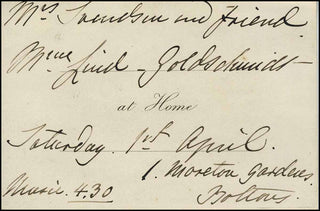 Mrs Svendsen and Friend
Mme Lind - Goldschmidt
at Home
Saturday. 1st April.
1. Moreton Gardens.
Music. 4.30
Boltons.